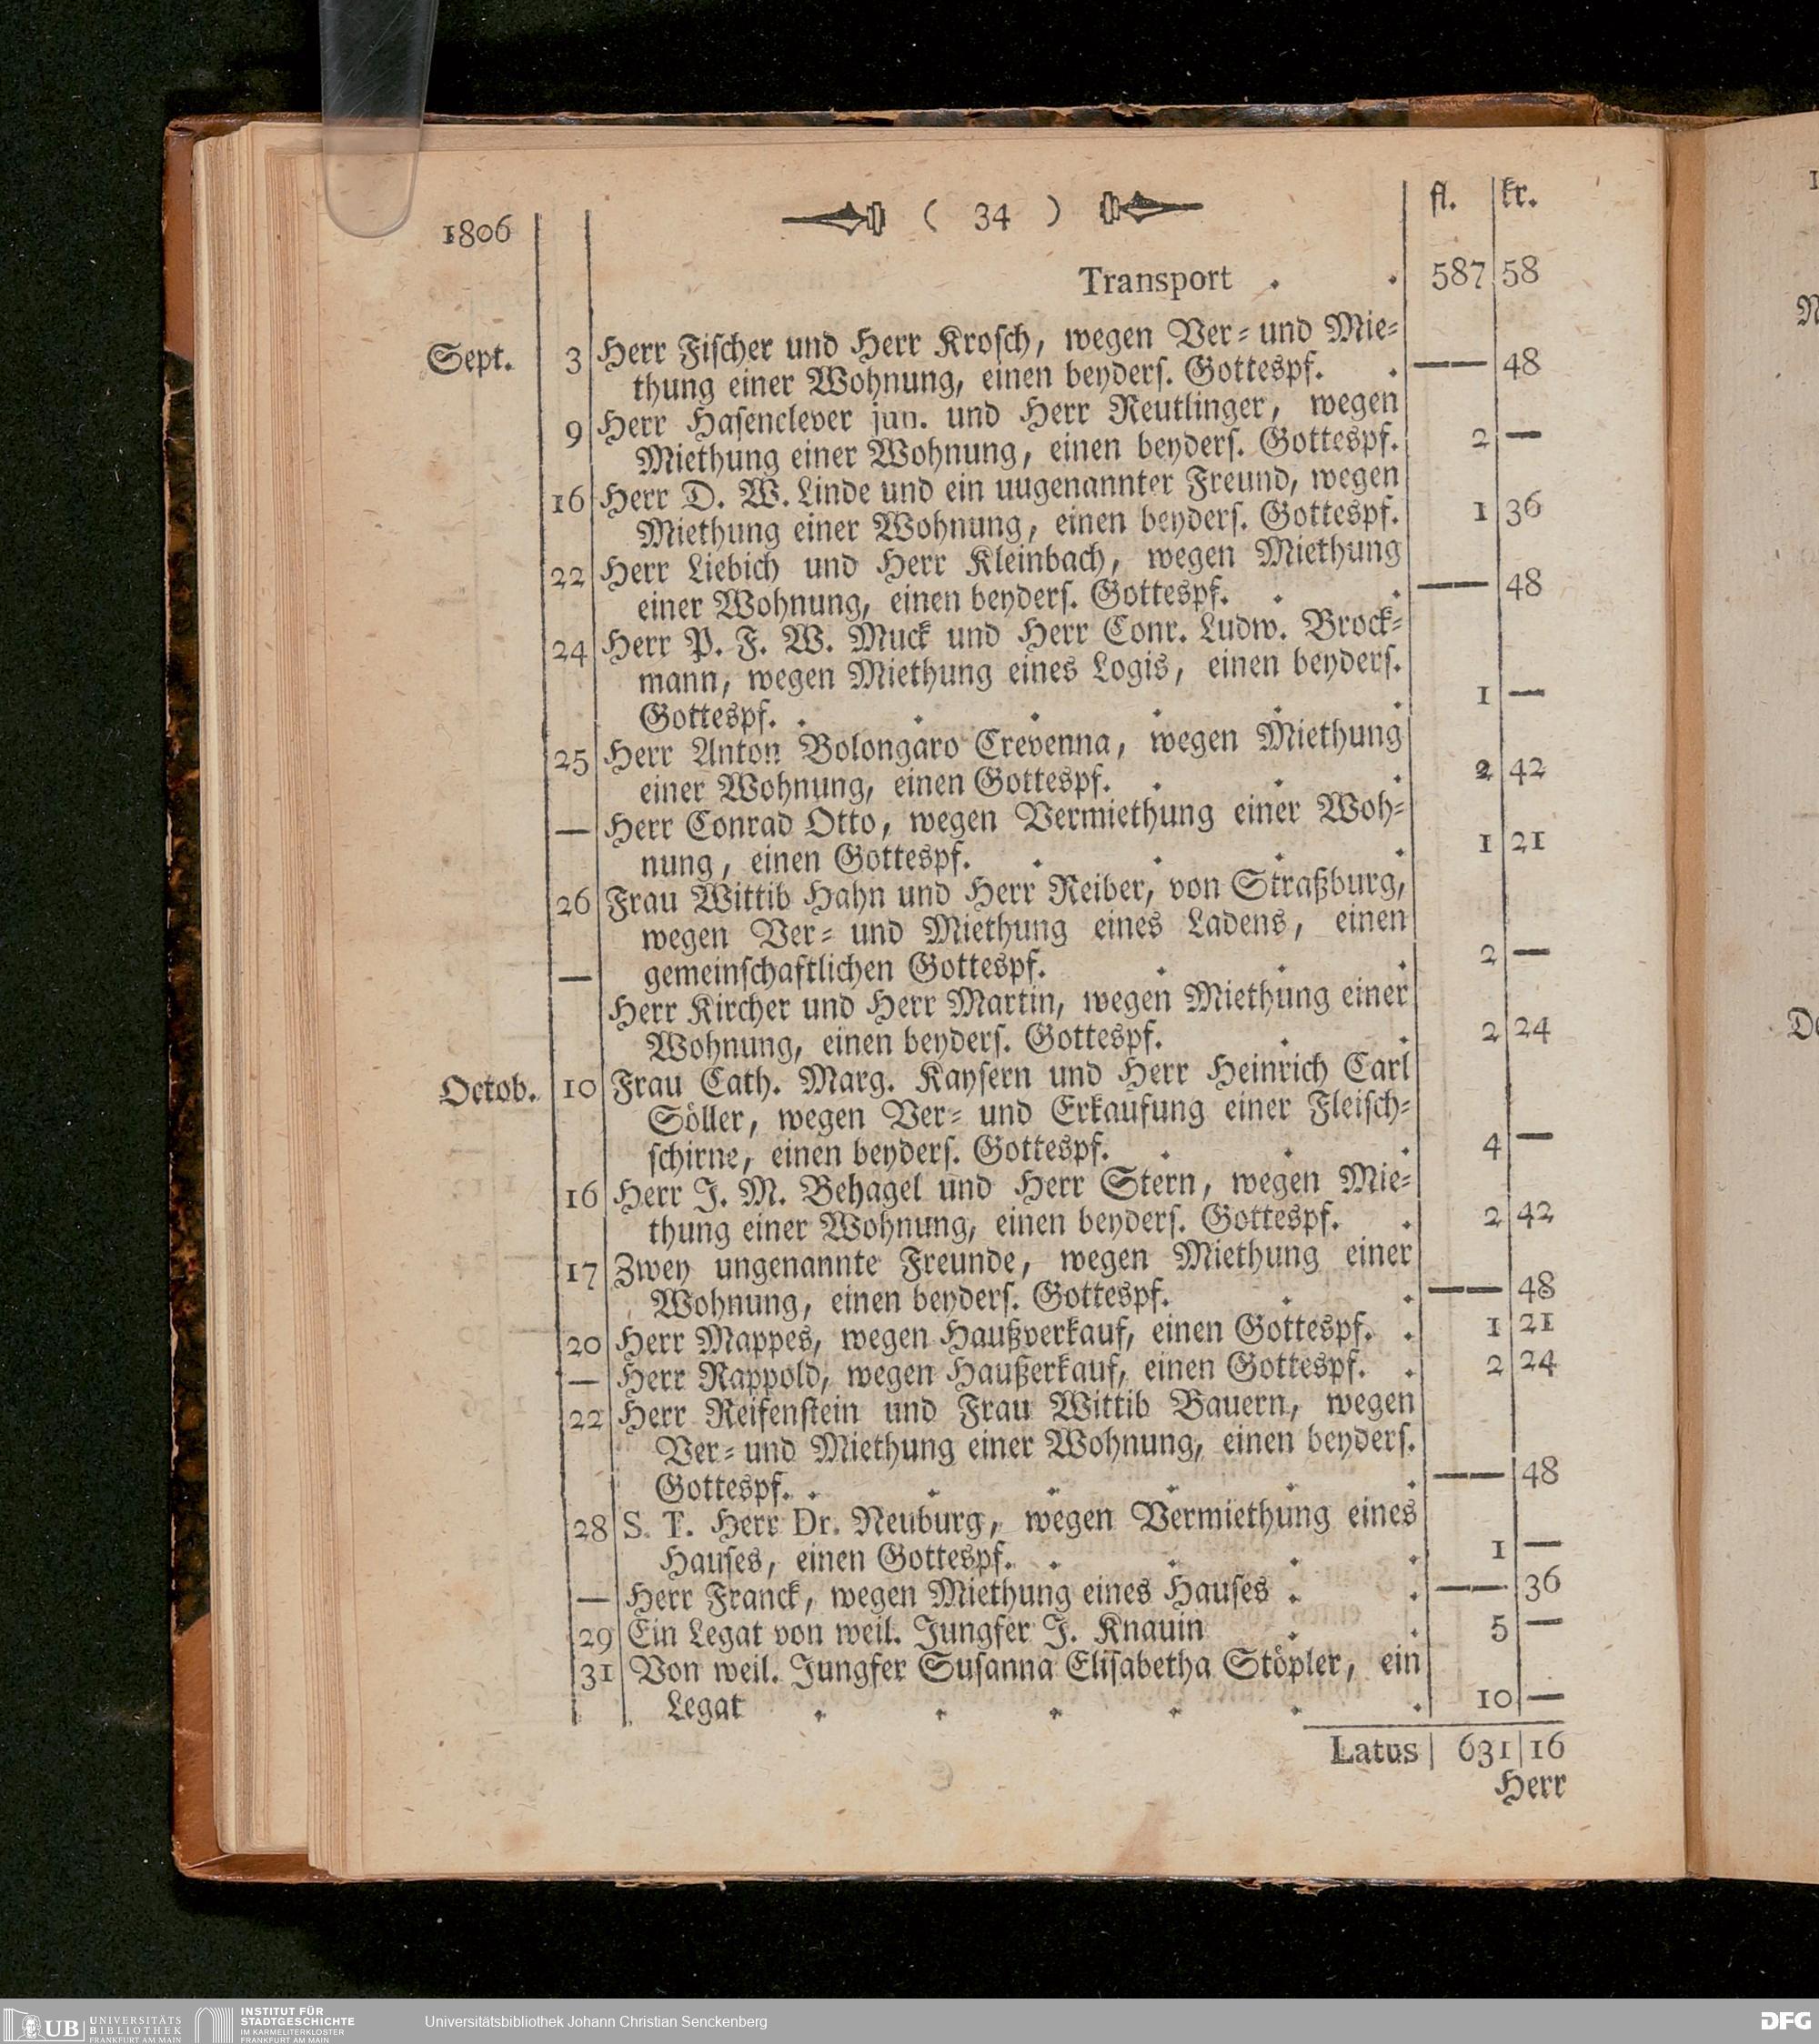 1806 ( 34 ) fl. kr.
Transport . . 587 58
Sept. 3 Herr Fiſcher und Herr Kroſch, wegen Ver- und Mie-
thung einer Wohnung, einen beyderſ. Gottespf. . —— 48
9 Herr Haſenclever jun. und Herr Reutlinger, wegen
Miethung einer Wohnung, einen beyderſ. Gottespf. 2 —
16 Herr D. W. Linde und ein uugenannter Freund, wegen
Miethung einer Wohnung, einen beyderſ. Gottespf. 1 36
22 Herr Liebich und Herr Kleinbach, wegen Miethung
einer Wohnung, einen beyderſ. Gottespf. . . —— 48
24 Herr P. F. W. Muck und Herr Conr. Ludw. Brock-
mann, wegen Miethung eines Logis, einen beyderſ.
Gottespf. . . . . . . 1 —
25 Herr Anton Bolongaro Crevenna, wegen Miethung
einer Wohnung, einen Gottespf. . . . 2 42
— Herr Conrad Otto, wegen Vermiethung einer Woh-
nung, einen Gottespf. . . . . 1 21
26 Frau Wittib Hahn und Herr Reiber, von Straßburg,
wegen Ver- und Miethung eines Ladens, einen
— gemeinſchaftlichen Gottespf. . . . 2 —
Herr Kircher und Herr Martin, wegen Miethung einer
Wohnung, einen beyderſ. Gottespf. . . 2 24
Octob. 10 Frau Cath. Marg. Kayſern und Herr Heinrich Carl
Söller, wegen Ver- und Erkaufung einer Fleiſch-
ſchirne, einen beyderſ. Gottespf. . . . 4 —
16 Herr J. M. Behagel und Herr Stern, wegen Mie-
thung einer Wohnung, einen beyderſ. Gottespf. . 2 42
17 Zwey ungenannte Freunde, wegen Miethung einer
Wohnung, einen beyderſ. Gottespf. . . —— 48
20 Herr Mappes, wegen Haußverkauf, einen Gottespf. . 1 21
— Herr Rappold, wegen Haußerkauf, einen Gottespf. . 2 24
22 Herr Reifenſtein und Frau Wittib Bauern, wegen
Ver- und Miethung einer Wohnung, einen beyderſ.
Gottespf. . . . . . . —— 48
28 S. T. Herr Dr. Neuburg, wegen Vermiethung eines
Hauſes, einen Gottespf. . . . . 1 —
— Herr Franck, wegen Miethung eines Hauſes . . —— 36
29 Ein Legat von weil. Jungfer J. Knauin . . 5 —
31 Von weil. Jungfer Suſanna Eliſabetha Stöpler, ein
Legat . . . . . . 10 —
Latus 631 16
Herr
UB UNIVERSITÄTS
BIBLIOTHEK
FRANKFURT AM MAIN
INSTITUT FÜR
STADTGESCHICHTE
IM KARMELITERKLOSTER
FRANKFURT AM MAIN
Universitätsbibliothek Johann Christian Senckenberg
DFG